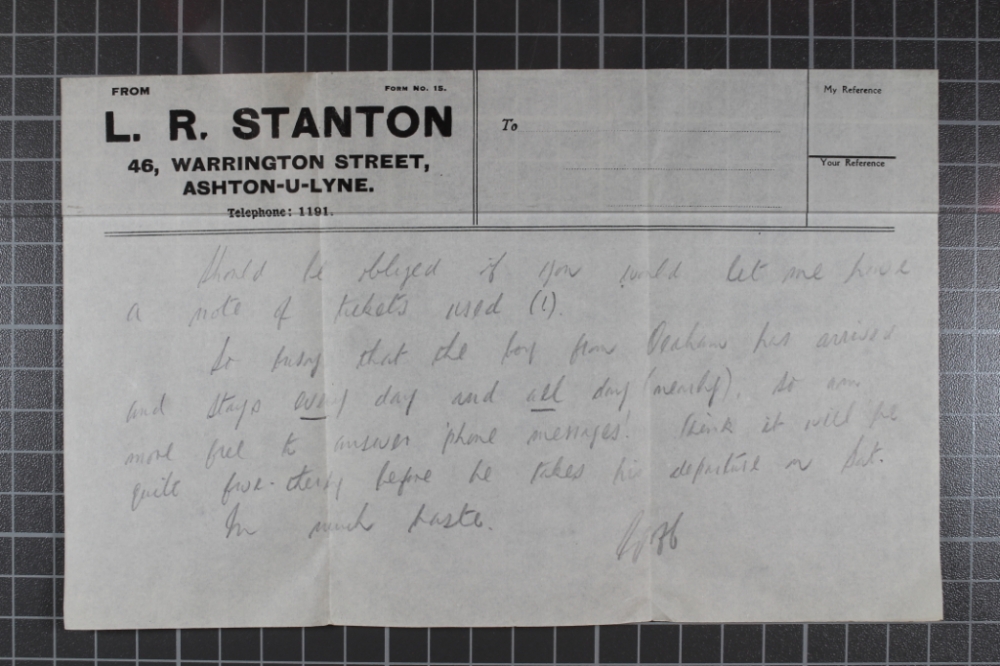 FROM
FORM NO. 15.
L. R. STANTON
46, WARRINGTON STREET,
ASHTON-U-LYNE.
Telephone: 1191.
To
My Reference
Your Reference
Should be obliged if you would let me have
a note of tickets used (1).
So busy that the boy from has arrived
and stays every day and all day (nearly), so am
more free to answer 'phone messages! Think it will be
quite five-thirty before he takes his departure on Sat.
In much haste.